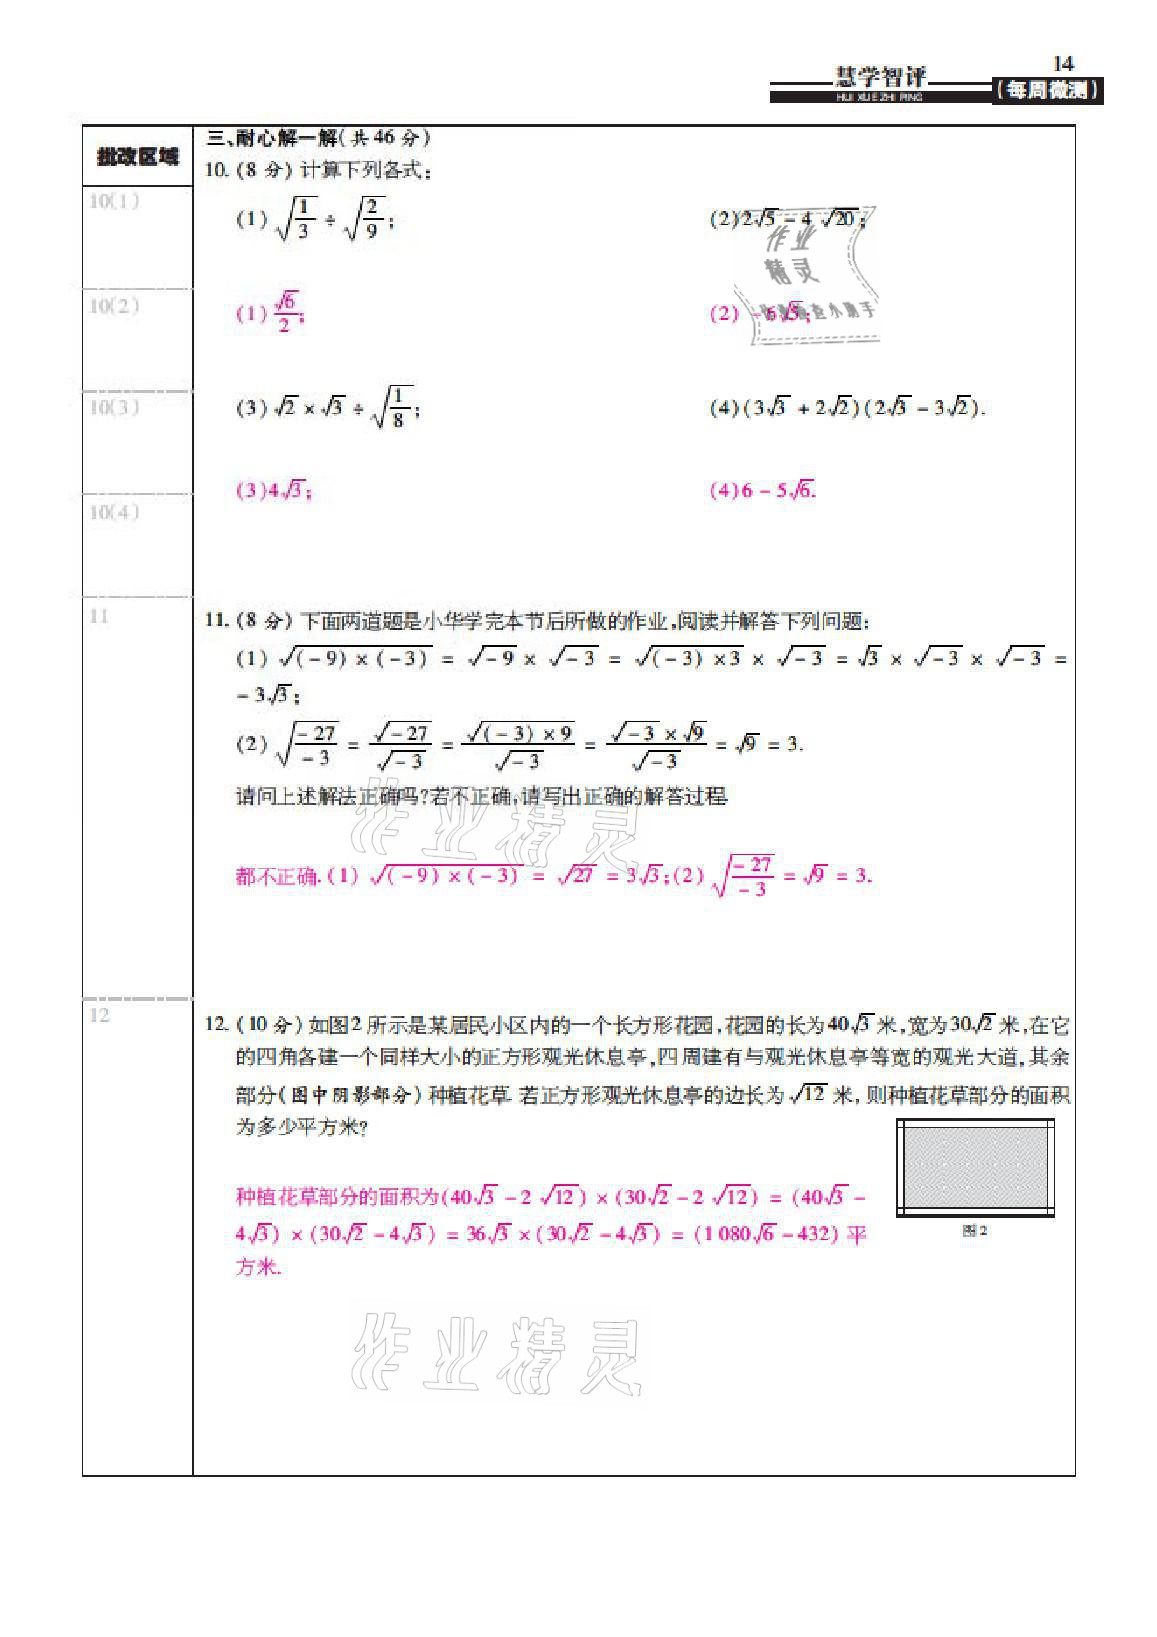 14
慧学智评
HUI XUE ZHI PING
(每周微测)
批改区域
三、耐心解一解(共46分)
10(1)
10.(8分)计算下列各式:
(1)√(1/3)÷√(2/9);
(2)2√5-4√20;
作业
精灵
10(2)
(1)√6/2;
(2)-6√5;
10(3)
(3)√2×√3÷√(1/8);
(4)(3√3+2√2)(2√3-3√2).
(3)4√3;
(4)6-5√6.
10(4)
11
11.(8分)下面两道题是小华学完本节后所做的作业,阅读并解答下列问题:
(1)√((-9)×(-3))=√-9×√-3=√((-3)×3)×√-3=√3×√-3×√-3=
-3√3;
(2)√(-27/-3)=√-27/√-3=√((-3)×9)/√-3=(√-3×√9)/√-3=√9=3.
请问上述解法正确吗?若不正确,请写出正确的解答过程.
都不正确.(1)√((-9)×(-3))=√27=3√3;(2)√(-27/-3)=√9=3.
作业精灵
12
12.(10分)如图2所示是某居民小区内的一个长方形花园,花园的长为40√3米,宽为30√2米,在它
的四角各建一个同样大小的正方形观光休息亭,四周建有与观光休息亭等宽的观光大道,其余
部分(图中阴影部分)种植花草.若正方形观光休息亭的边长为√12米,则种植花草部分的面积
为多少平方米?
种植花草部分的面积为(40√3-2√12)×(30√2-2√12)=(40√3-
4√3)×(30√2-4√3)=36√3×(30√2-4√3)=(1 080√6-432)平
方米.
图2
作业精灵